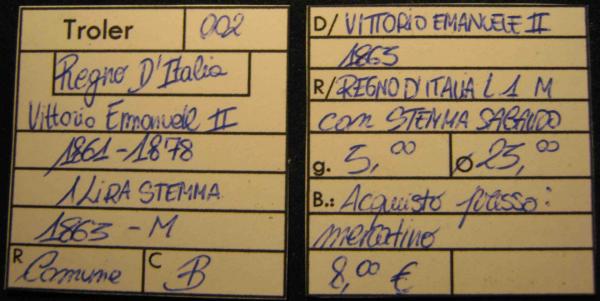 Troler 002
Regno D'Italia
Vittorio Emanuele II
1861-1878
1 LIRA STEMMA
1863 - M
R Comune C B
D/ VITTORIO EMANUELE II
1863
R/ REGNO D'ITALIA L 1 M
con STEMMA SABAUDO
g. 5,00 Ø 23,00
B.: Acquisto presso:
mercatino
8,00 €